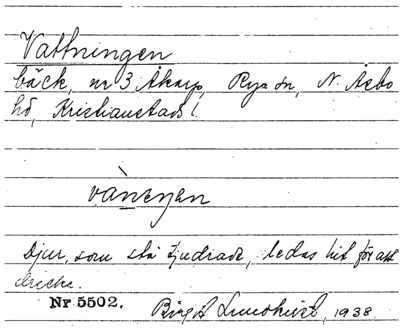 Vattningen
bäck, nr 3 Åkarp, Rya sn, N. Åsbo
hd, Kristianstads l.
Djur, som stå tjudrade, ledas hit för att
dricka.
Nr 5502. Birgit Lundkvist, 1938.